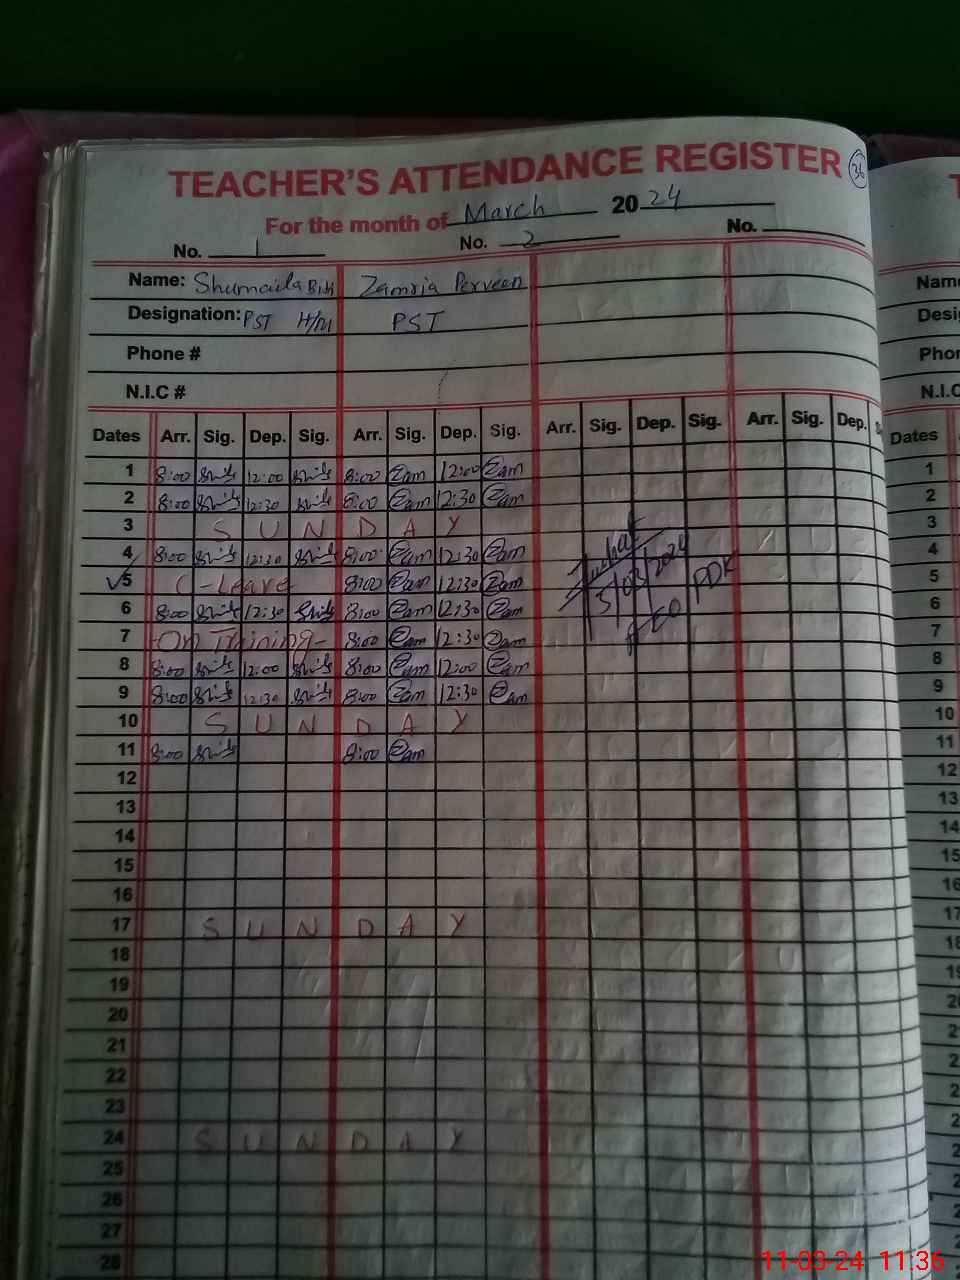 TEACHER'S ATTENDANCE REGISTER 36
For the month of March 2024
No. 1 No. 2 No.
Name: Shumaila Bibi Zamria Perveen
Designation: PST H/M PST
Phone #
N.I.C #
Dates Arr. Sig. Dep. Sig. Arr. Sig. Dep. Sig. Arr. Sig. Dep. Sig. Arr. Sig. Dep.
1 8:00 12:00 8:00 Zam 12:00 Zam
2 8:00 12:30 8:00 Zam 12:30 Zam
3 S U N D A Y
4 8:00 12:30 8:00 Zam 12:30 Zam
5 C-Leave 8:00 Zam 12:30 Zam
6 8:00 12:30 8:00 Zam 12:30 Zam
7 -On Training- 8:00 Zam 12:30 Zam
8 8:00 12:00 8:00 Zam 12:00 Zam
9 8:00 12:30 8:00 Zam 12:30 Zam
10 S U N D A Y
11 8:00 8:00 Zam
12
13
14
15
16
17 S U N D A Y
18
19
20
21
22
23
24 S U N D A Y
25
26
27
28
5/03/2024
PDK
Name
Dates
1
2
3
4
5
6
7
8
9
10
11
12
13
14
15
16
17
18
11-03-24 11:36